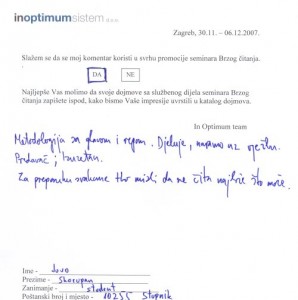 inoptimum sistem d.o.o.
Zagreb, 30.11. – 06.12.2007.
Slažem se da se moj komentar koristi u svrhu promocije seminara Brzog čitanja.
DA NE
Najljepše Vas molimo da svoje dojmove sa službenog dijela seminara Brzog
čitanja zapišete ispod, kako bismo Vaše impresije uvrstili u katalog dojmova.
In Optimum team
Metodologija sa glavom i repom. Djeluje, naravno uz vježbu.
Predavač; izuzetan.
Za preporuku svakome tko misli da ne čita najbrže što može.
Ime -
Prezime - Skorupan
Zanimanje - student
Poštanski broj i mjesto - 10255 Stupnik